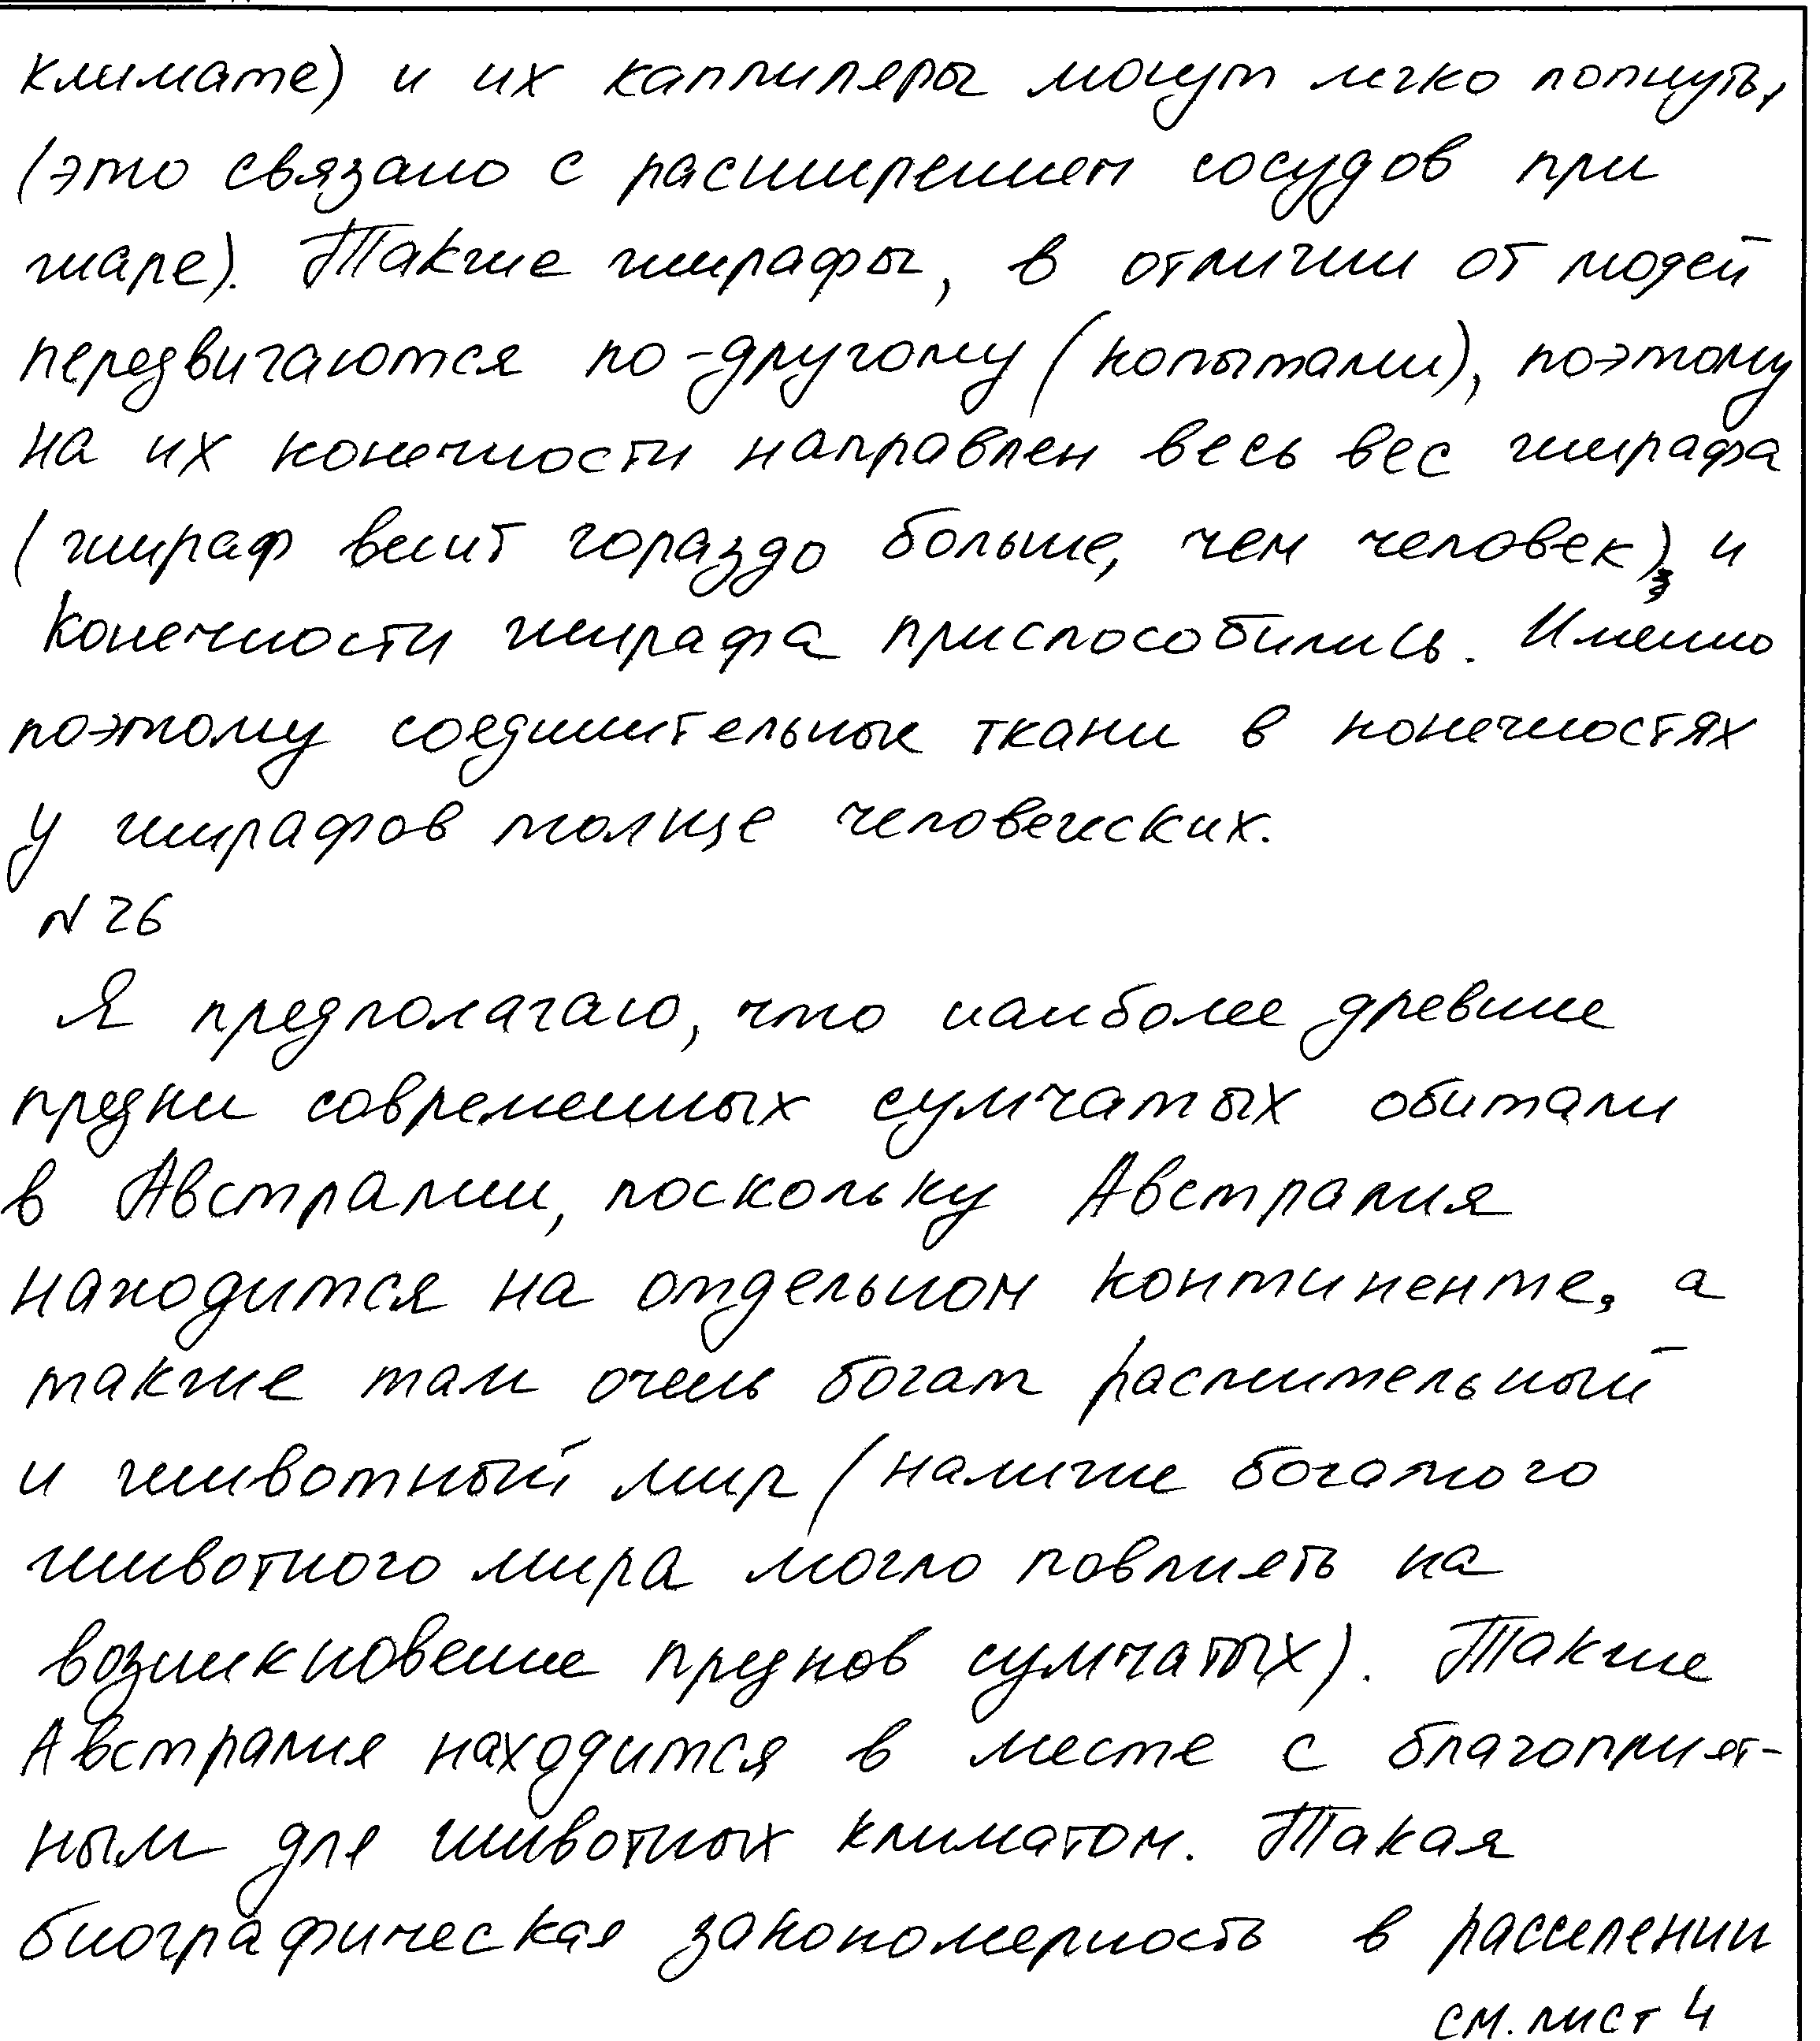 климате) и их каппиляры могут легко лопнуть,
(это связано с расширением сосудов при
жаре). Также жирафы, в отличии от людей
передвигаются по-другому (копытами), поэтому
на их конечности направлен весь вес жирафа
(жираф весит гораздо больше, чем человек), и
конечности жирафа приспособились. Именно
поэтому соединительные ткани в конечностях
у жирафов толще человеческих.
N 26
Я предполагаю, что наиболее древние
предки современных сумчатых обитали
в Австралии, поскольку Австралия
находится на отдельном континенте, а
также там очень богат растительный
и животный мир (наличие богатого
животного мира могло повлиять на
возникновение предков сумчатых). Также
Австралия находится в месте с благоприят-
ным для животных климатом. Такая
биографическая закономерность в расселении
см. лист 4